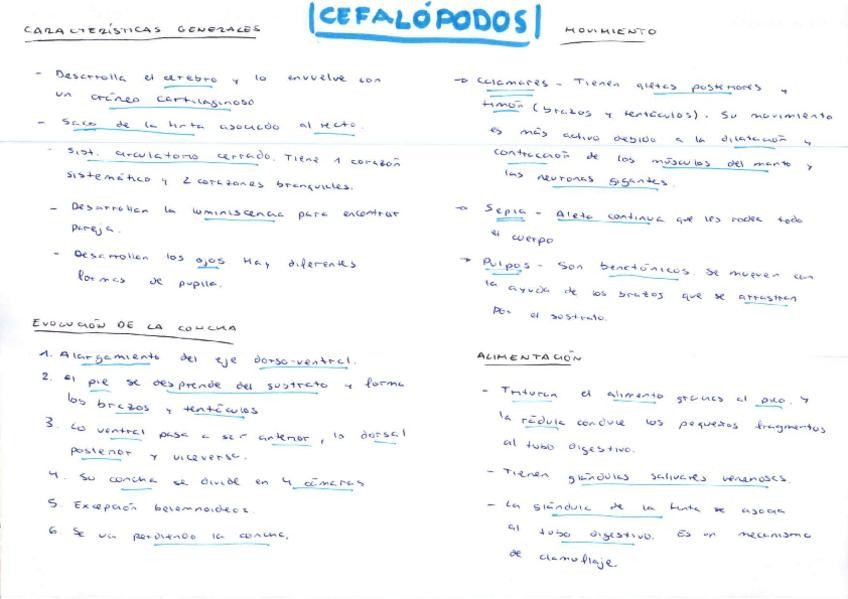 CEFALÓPODOS
CARACTERÍSTICAS GENERALES
- Desarrolla el cerebro y lo envuelve con
un cráneo cartilaginoso
- Saco de la tinta asociado al recto.
- Sist. circulatorio cerrado. Tiene 1 corazón
sistemático y 2 corazones branquiales.
- Desarrollan la luminiscencia para encontrar
pareja.
- Desarrollan los ojos. Hay diferentes
formas de pupila.
EVOLUCIÓN DE LA CONCHA
1. Alargamiento del eje dorso-ventral.
2. El pie se desprende del sustrato y forma
los brazos y tentáculos
3. Lo ventral pasa a ser anterior, lo dorsal
posterior y viceversa.
4. Su concha se divide en 4 cámaras
5. Excepción belemnoideos.
6. Se va perdiendo la concha.
MOVIMIENTO
→ Calamares - Tienen aletas posteriores y
timón (brazos y tentáculos). Su movimiento
es más activo debido a la dilatación y
contracción de los músculos del manto y
las neuronas gigantes.
→ Sepia - Aleta continua que les rodea todo
el cuerpo
→ Pulpos - Son bentónicos. Se mueven con
la ayuda de los brazos que se arrastran
por el sustrato.
ALIMENTACIÓN
- Trituran el alimento gracias al pico. Y
la rádula conduce los pequeños fragmentos
al tubo digestivo.
- Tienen glándulas salivares venenosas.
- La glándula de la tinta se asocia
al tubo digestivo. Es un mecanismo
de clamuflaje.